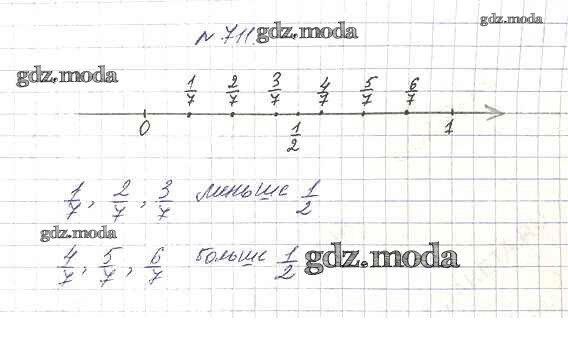 № 711. gdz.moda
gdz.moda
gdz.moda
1/7 2/7 3/7 4/7 5/7 6/7
0 1/2 1
1/7, 2/7, 3/7 меньше 1/2
gdz.moda
4/7, 5/7, 6/7 больше 1/2 gdz.moda